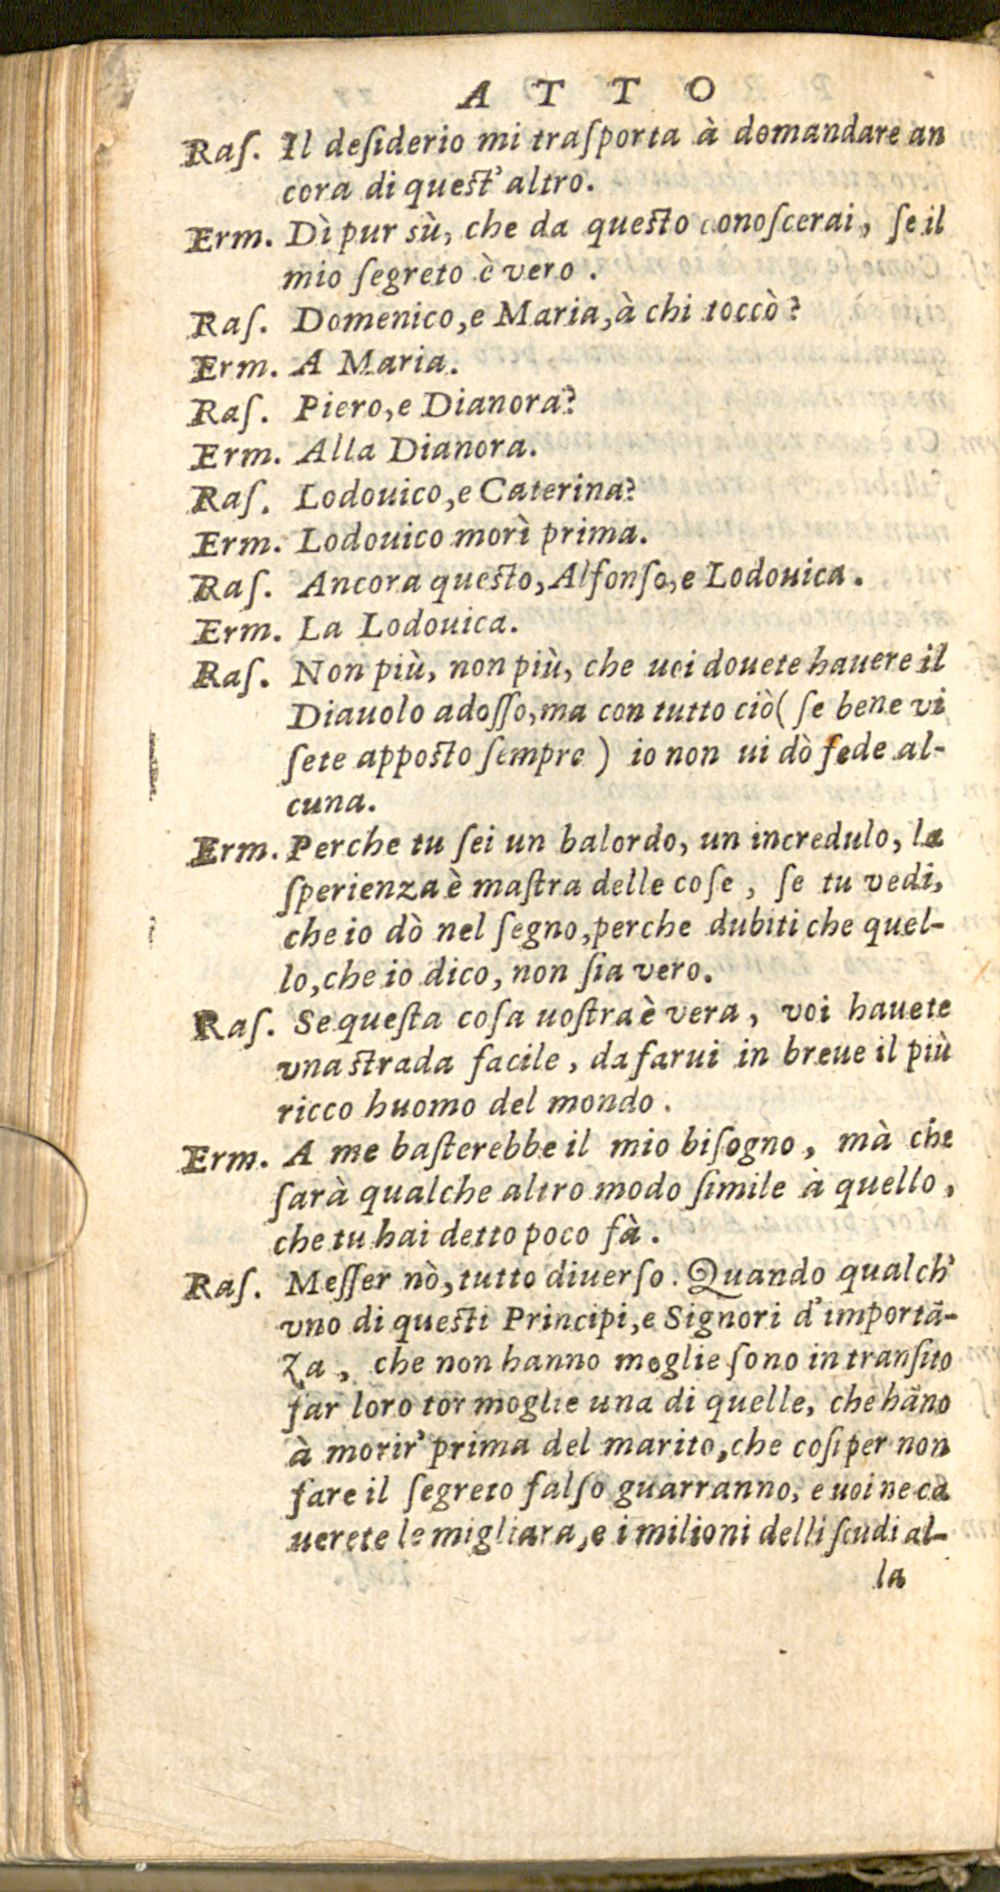 ATTO
Raſ. Il deſiderio mi traſporta à domandare an
cora di queſt'altro.
Erm. Dì pur sù, che da queſto conoſcerai, ſe il
mio ſegreto è vero.
Raſ. Domenico, e Maria, à chi toccò?
Erm. A Maria.
Raſ. Piero, e Dianora?
Erm. Alla Dianora.
Raſ. Lodouico, e Caterina?
Erm. Lodouico morì prima.
Raſ. Ancora queſto, Alfonſo, e Lodouica.
Erm. La Lodouica.
Raſ. Non più, non più, che uoi douete hauere il
Diauolo adoſſo, ma con tutto ciò (ſe bene vi
ſete appoſto ſempre) io non ui dò fede al-
cuna.
Erm. Perche tu ſei un balordo, un incredulo, la
ſperienza è maſtra delle coſe, ſe tu vedi,
che io dò nel ſegno, perche dubiti che quel-
lo, che io dico, non ſia vero.
Raſ. Se queſta coſa uoſtra è vera, voi hauete
vna ſtrada facile, da farui in breue il più
ricco huomo del mondo.
Erm. A me baſterebbe il mio biſogno, mà che
ſarà qualche altro modo ſimile à quello,
che tu hai detto poco fà.
Raſ. Meſſer nò, tutto diuerſo. Quando qualch'
vno di queſti Principi, e Signori d'importā-
za, che non hanno moglie ſono in tranſito
far loro tor moglie una di quelle, che hāno
à morir' prima del marito, che coſi per non
fare il ſegreto falſo guarranno, e uoi ne ca
uerete le migliara, e i milioni delli ſcudi al-
la